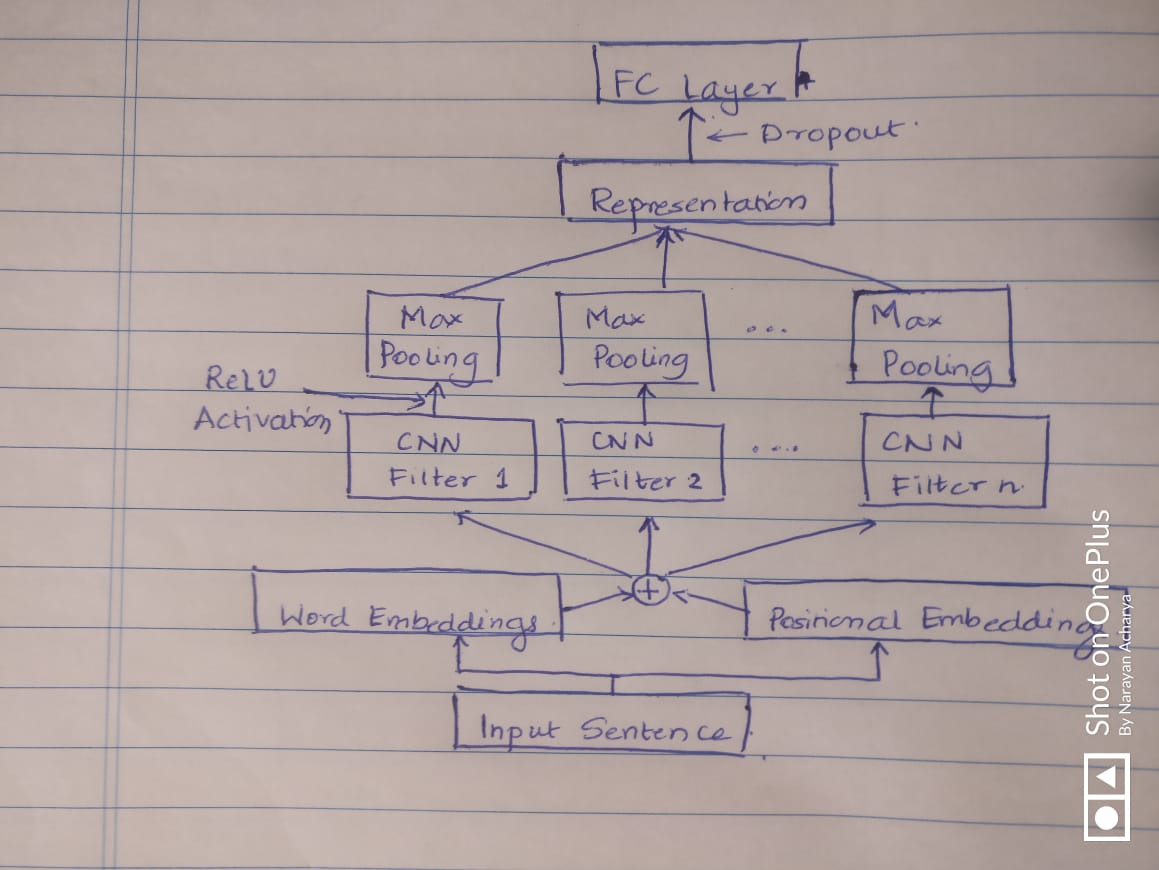 FC Layer
← Dropout.
Representation
Max Pooling
Max Pooling
...
Max Pooling
ReLU
Activation
CNN
Filter 1
CNN
Filter 2
....
CNN
Filter n.
+
Word Embeddings.
Positional Embedding
Input Sentence
Shot on OnePlus
By Narayan Acharya